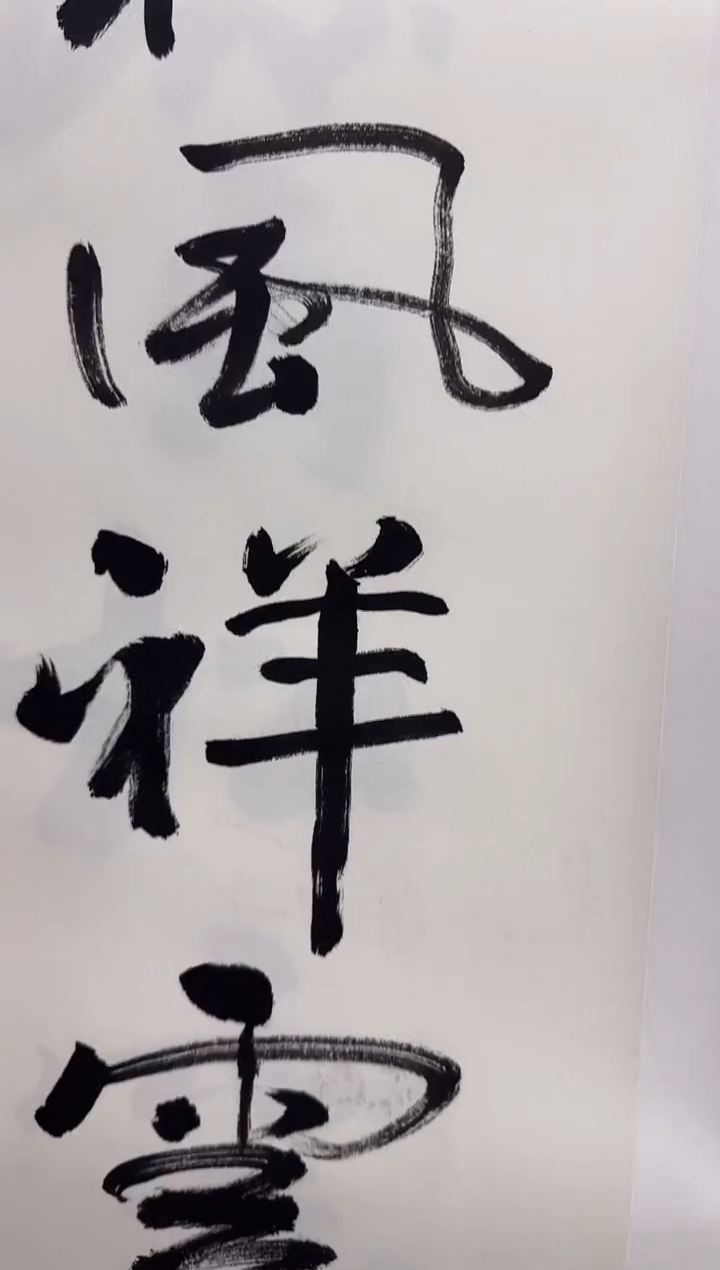 風祥雲